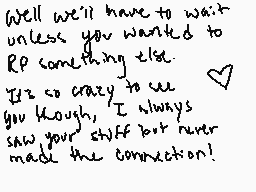 Well we'll have to wait
unless you wanted to
RP something else.
It's so crazy to see
you though, I always
saw your stuff but never
made the connection!